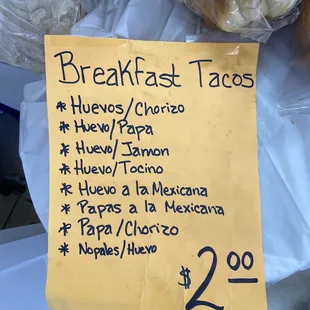 Breakfast Tacos
* Huevos/Chorizo
* Huevo/Papa
* Huevo/Jamon
* Huevo/Tocino
* Huevo a la Mexicana
* Papas a la Mexicana
* Papa/Chorizo
* Nopales/Huevo
$2.00